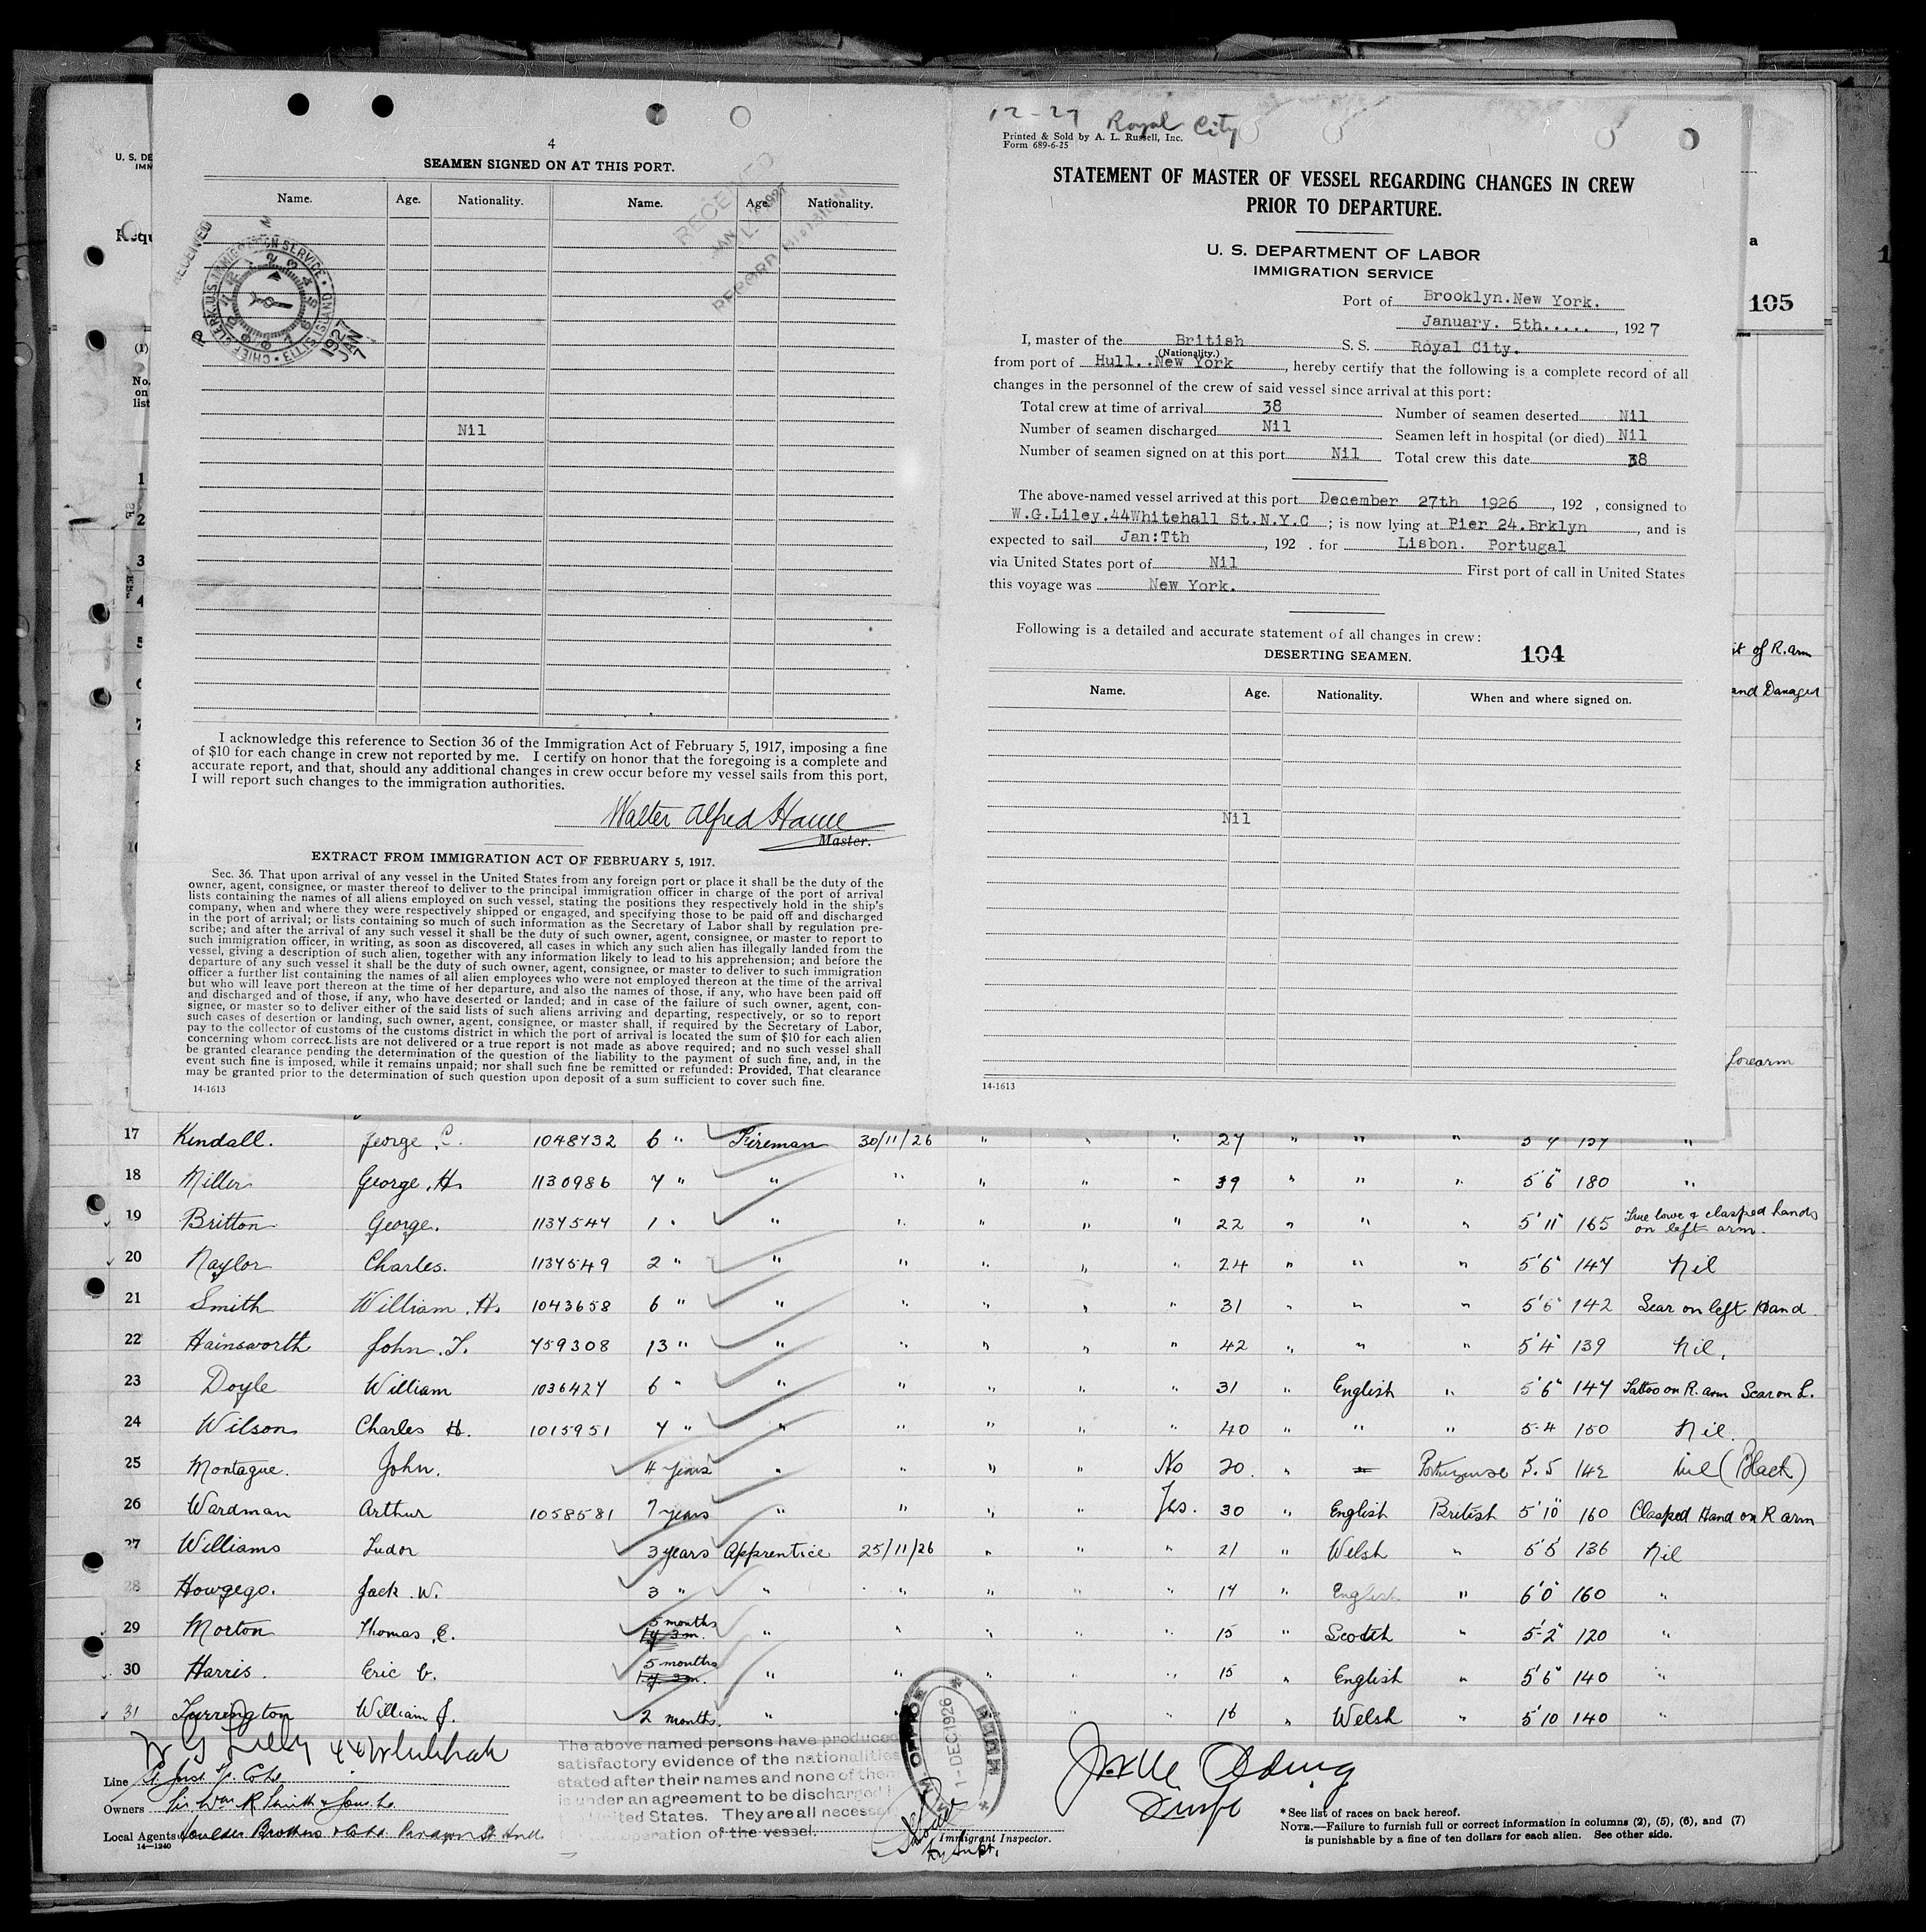 4
SEAMEN SIGNED ON AT THIS PORT.
Name. Age. Nationality. Name. Age. Nationality.
RECEIVED
JAN 1927
RECORD DIVISION
RECEIVED
CHIEF CLERK U.S. IMMIGRATION SERVICE ELLIS ISLAND
1927 JAN 7
Nil
I acknowledge this reference to Section 36 of the Immigration Act of February 5, 1917, imposing a fine
of $10 for each change in crew not reported by me. I certify on honor that the foregoing is a complete and
accurate report, and that, should any additional changes in crew occur before my vessel sails from this port,
I will report such changes to the immigration authorities.
Walter Alfred
Master.
EXTRACT FROM IMMIGRATION ACT OF FEBRUARY 5, 1917.
Sec. 36. That upon arrival of any vessel in the United States from any foreign port or place it shall be the duty of the
owner, agent, consignee, or master thereof to deliver to the principal immigration officer in charge of the port of arrival
lists containing the names of all aliens employed on such vessel, stating the positions they respectively hold in the ship's
company, when and where they were respectively shipped or engaged, and specifying those to be paid off and discharged
in the port of arrival; or lists containing so much of such information as the Secretary of Labor shall by regulation pre-
scribe; and after the arrival of any such vessel it shall be the duty of such owner, agent, consignee, or master to report to
such immigration officer, in writing, as soon as discovered, all cases in which any such alien has illegally landed from the
vessel, giving a description of such alien, together with any information likely to lead to his apprehension; and before the
departure of any such vessel it shall be the duty of such owner, agent, consignee, or master to deliver to such immigration
officer a further list containing the names of all alien employees who were not employed thereon at the time of the arrival
but who will leave port thereon at the time of her departure, and also the names of those, if any, who have been paid off
and discharged and of those, if any, who have deserted or landed; and in case of the failure of such owner, agent, con-
signee, or master so to deliver either of the said lists of such aliens arriving and departing, respectively, or so to report
such cases of desertion or landing, such owner, agent, consignee, or master shall, if required by the Secretary of Labor,
pay to the collector of customs of the customs district in which the port of arrival is located the sum of $10 for each alien
concerning whom correct lists are not delivered or a true report is not made as above required; and no such vessel shall
be granted clearance pending the determination of the question of the liability to the payment of such fine, and, in the
event such fine is imposed, while it remains unpaid; nor shall such fine be remitted or refunded: Provided, That clearance
may be granted prior to the determination of such question upon deposit of a sum sufficient to cover such fine.
14-1613
12-27 Royal City
Printed & Sold by A. L. Russell, Inc.
Form 689-6-25
STATEMENT OF MASTER OF VESSEL REGARDING CHANGES IN CREW
PRIOR TO DEPARTURE.
U. S. DEPARTMENT OF LABOR
IMMIGRATION SERVICE
Port of Brooklyn.New York.
January. 5th....., 1927
I, master of the British S. S. Royal City.
(Nationality.)
from port of Hull..New York, hereby certify that the following is a complete record of all
changes in the personnel of the crew of said vessel since arrival at this port:
Total crew at time of arrival 38 Number of seamen deserted Nil
Number of seamen discharged Nil Seamen left in hospital (or died) Nil
Number of seamen signed on at this port Nil Total crew this date 38
The above-named vessel arrived at this port December 27th 1926, 192 , consigned to
W.G.Liley.44Whitehall St.N.Y.C; is now lying at Pier 24.Brklyn, and is
expected to sail Jan:Tth, 192 . for Lisbon. Portugal
via United States port of Nil First port of call in United States
this voyage was New York.
Following is a detailed and accurate statement of all changes in crew:
DESERTING SEAMEN. 104
Name. Age. Nationality. When and where signed on.
Nil
14-1613
U. S. DE
IMM
a
105
(1)
No.
on
list
1
2
3
4
5
6
7
8
of R. arm
and
forearm
17 Kendall. George C. 1048732 6 " Fireman 30/11/26 " " " 27 " " " "
18 Miller George. H. 1130986 7 " " " " " " 39 " " " 5'6" 180 "
19 Britton George. 1137547 1 " " " " " " 22 " " " 5'11" 165 True love & clasped hands
on left arm.
20 Naylor Charles. 1137549 2 " " " " " " 24 " " " 5'6" 147 Nil
21 Smith William. H. 1043658 6 " " " " " " 31 " " " 5'6" 142 Scar on left Hand
22 Hainsworth John. T. 759308 13 " " " " " " 42 " " " 5'4" 139 Nil.
23 Doyle William 1036427 6 " " " " " " 31 " English " 5'6" 147 Tattoo on R. arm Scar on L.
24 Wilson Charles H. 1015951 7 " " " " " " 40 " " " 5-4 150 Nil.
25 Montague. John. 4 years " " " " No 20. " Portuguese 5.5 142 Nil (Black)
26 Wardman Arthur 1058581 7 years " " " " Yes. 30 " English British 5'10" 160 Clasped Hand on R arm
27 Williams Tudor 3 years Apprentice 25/11/26 " " " 21 " Welsh " 5'5 136 Nil
28 Howgego. Jack. W. 3 " " " " " " 17 " English " 6'0" 160 "
29 Morton Thomas. C. 5 months " " " " " 15 " Scotch " 5-2" 120 "
30 Harris. Eric 5 months " " " " " 15 " English " 5'6" 140 "
31 Turrington William J. 2 months. " " " " " 16 " Welsh " 5'10 140 "
W G Lilly 44 Whitehall
Line
Owners Sir Wm R Smith & Sons Ld
Local Agents Brothers Hull
14-1240
The above named persons have produced
satisfactory evidence of the nationalities
stated after their names and none of them
is under an agreement to be discharged
United States. They are all necessa
operation of the vessel.
1-DEC1926
HULL
Immigrant Inspector.
* See list of races on back hereof.
NOTE.—Failure to furnish full or correct information in columns (2), (5), (6), and (7)
is punishable by a fine of ten dollars for each alien. See other side.